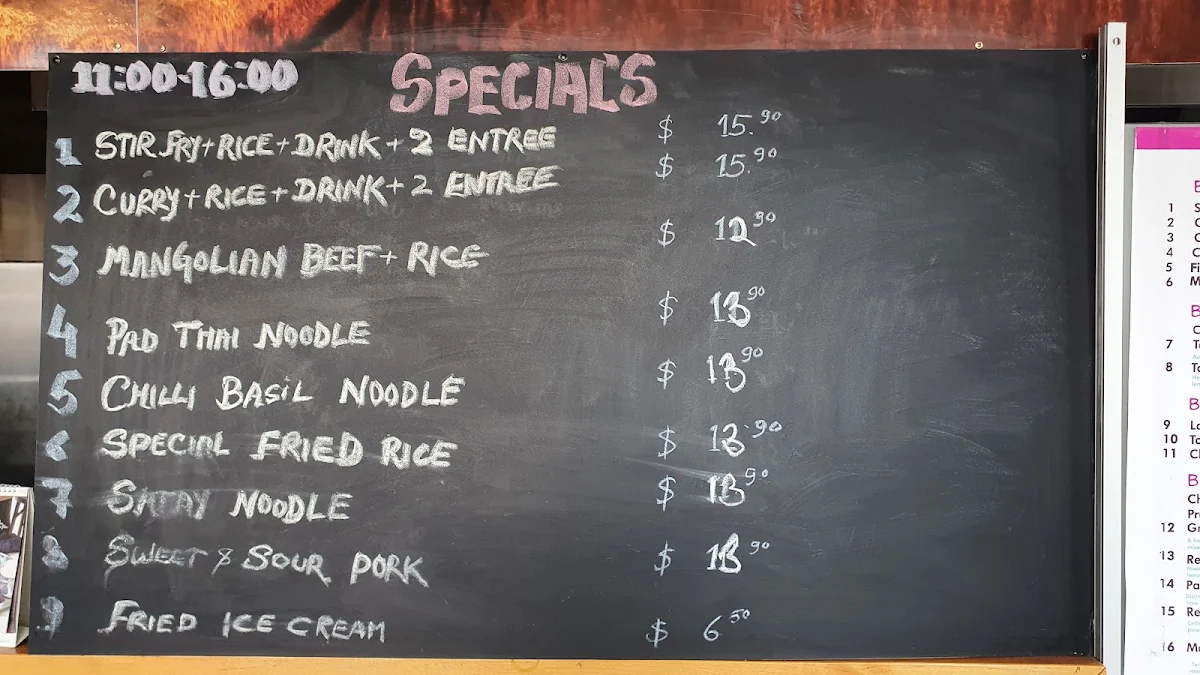 11:00-16:00 SPECIAL'S
1 STIR FRY+RICE+DRINK+2 ENTREE $ 15.90
2 CURRY+RICE+DRINK+2 ENTREE $ 15.90
3 MANGOLIAN BEEF+RICE $ 12.90
4 PAD THAI NOODLE $ 13.90
5 CHILLI BASiL NOODLE $ 13.90
6 SPECIAL FRIED RICE $ 13.90
7 SATAY NOODLE $ 13.90
8 SWEET & SOUR PORK $ 13.90
9 FRIED ICE CREAM $ 6.50
1
2
3
4
5 Fi
6
7
8
9
10
11
12
13
14
15
16